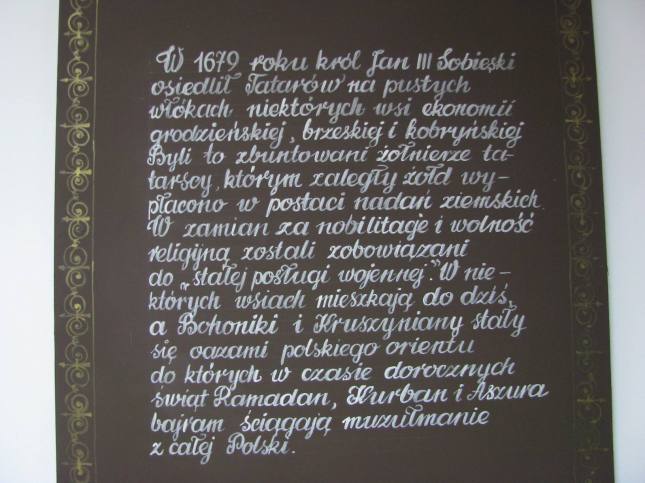 W 1679 roku król Jan III Sobieski
osiedlił Tatarów na pustych
włókach niektórych wsi ekonomii
grodzieńskiej, brzeskiej i kobryńskiej
Byli to zbuntowani żołnierze ta-
tarscy, którym zaległy żołd wy-
płacono w postaci nadań ziemskich.
W zamian za nobilitaje i wolność
religijną zostali zobowiązani
do „stałej posługi wojennej." W nie-
których wsiach mieszkają do dziś,
a Bohoniki i Kruszyniany stały
się oazami polskiego orientu
do których w czasie dorocznych
świąt Ramadan, Kurban i Aszura
bajram ściągają muzułmanie
z całej Polski.